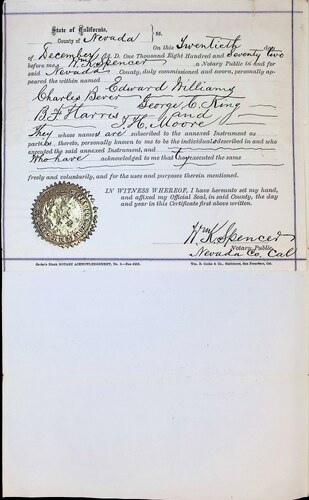 State of California,
County of Nevada } ss.
On this Twentieth day
of December A. D. One Thousand Eight Hundred and Seventy two
before me, Wm K. Spencer, a Notary Public in and for
said Nevada County, duly commissioned and sworn, personally appeared
the within named Edward Williams
Charles Bever George C. King
B. F. Harris and
T. H. Moore
They whose names are subscribed to the annexed Instrument as
parties thereto, personally known to me to be the individuals described in and who
executed the said annexed Instrument, and
Who have acknowledged to me that they executed the same
freely and voluntarily, and for the uses and purposes therein mentioned.
IN WITNESS WHEREOF, I have hereunto set my hand,
and affixed my Official Seal, in said County, the day
and year in this Certificate first above written.
Wm K. Spencer
Notary Public
Nevada Co. Cal
NOTARY ACKNOWLEDGMENT, No.
San Francisco, Cal.